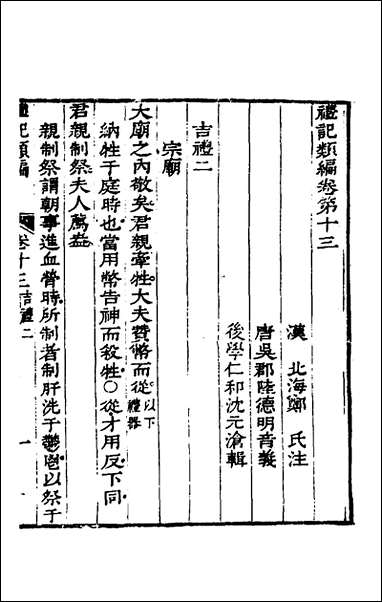 禮記類編卷第十三
漢　北海鄭　氏注
唐吳郡陸德明音義
後學仁和沈元滄輯
吉禮二
宗廟
大廟之內敬矣君親牽牲大夫贊幣而從以下禮器
納牲于庭時也當用幣告神而殺牲○從才用反下同
君親制祭夫人薦盎
親制祭謂朝事進血膋時所制者制肝洗于鬱鬯以祭于
禮記類編　卷十三吉禮二　一